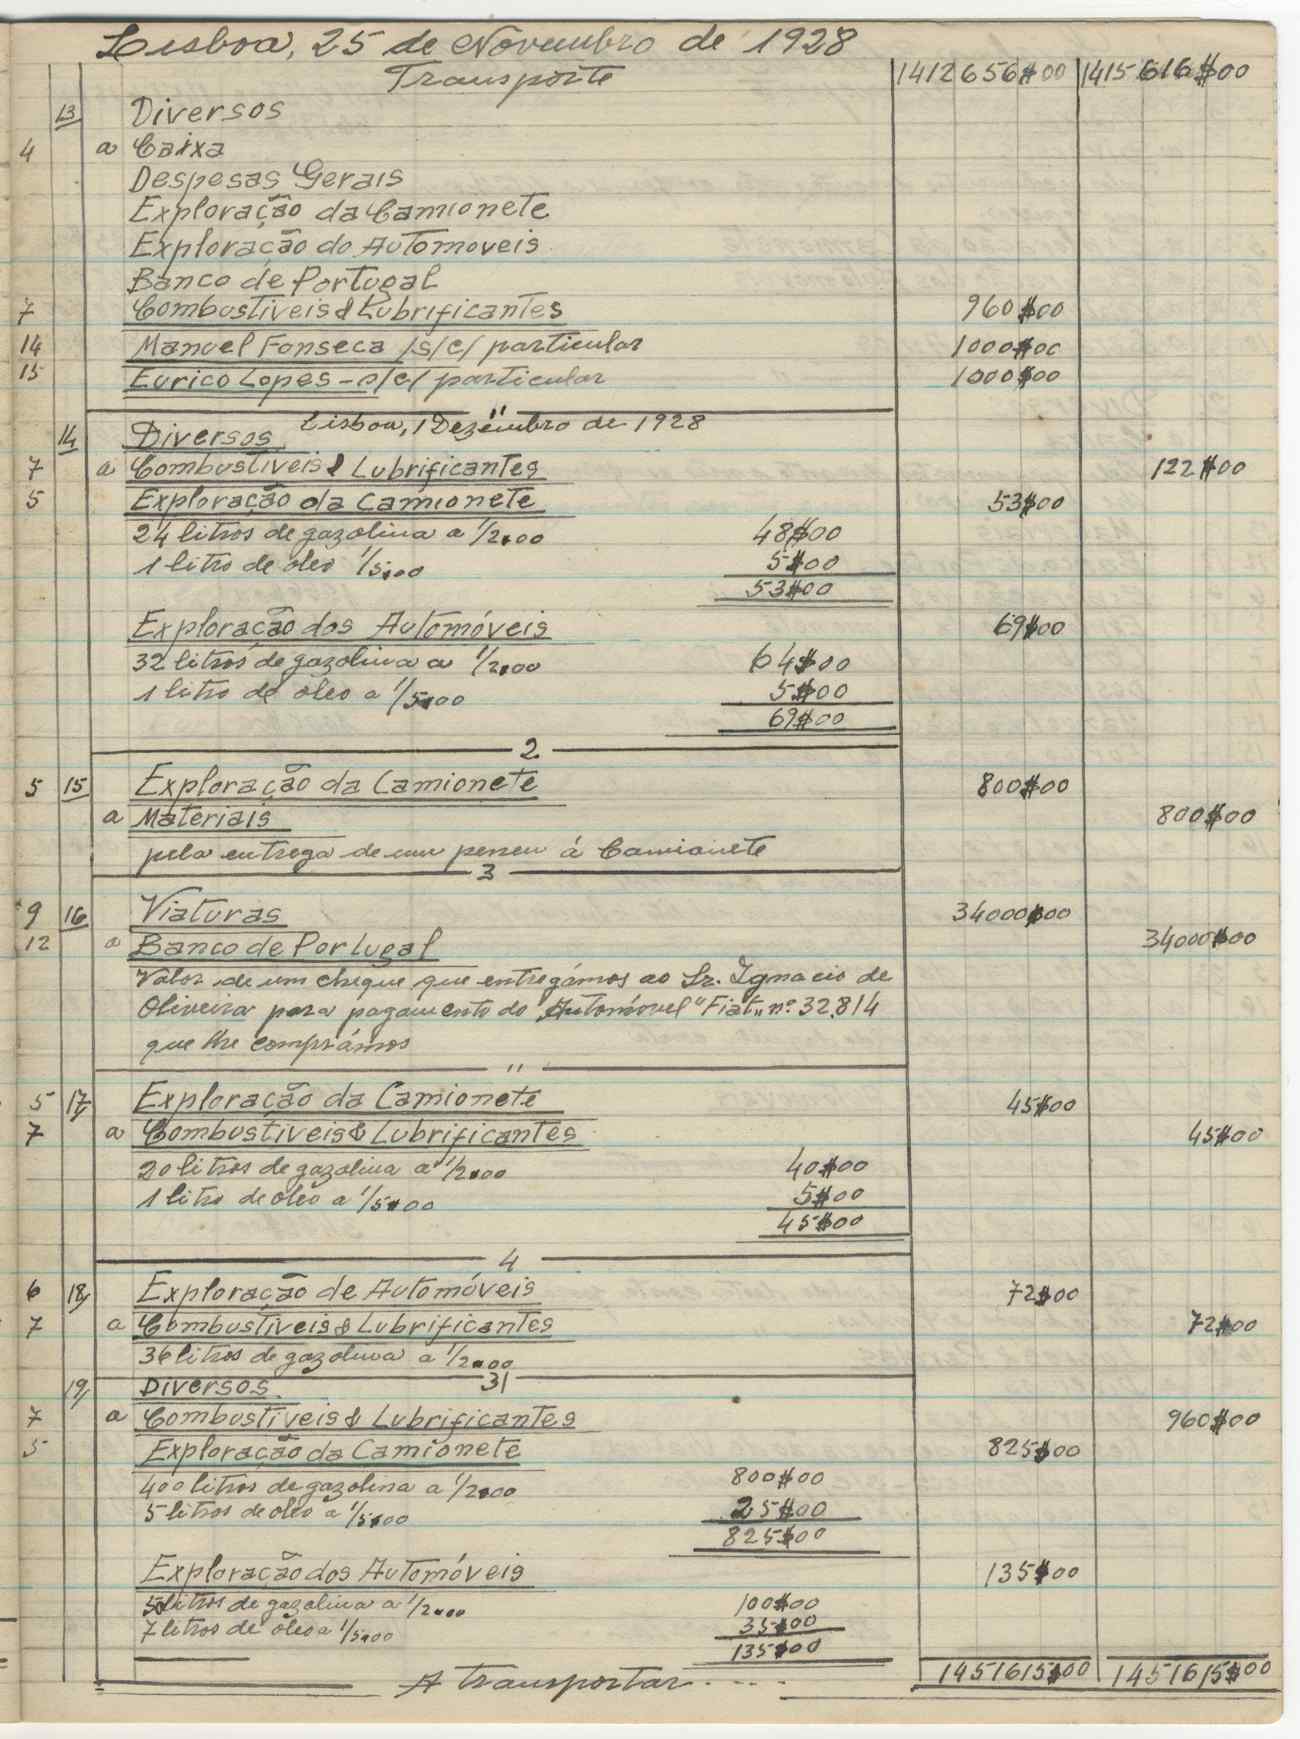 Lisboa, 25 de Novembro de 1928
Transporte 1412656$00 1415616$00
13 Diversos
4 a Caixa
Despesas Gerais
Exploração da Camionete
Exploração do Automoveis
Banco de Portugal
7 Combustiveis & Lubrificantes 960$00
14 Manuel Fonseca /s/c/ particular 1000$00
15 Eurico Lopes - s/c/ particular 1000$00
"
14 Diversos Lisboa, 1 Dezembro de 1928
7 a Combustiveis & Lubrificantes 122$00
5 Exploração da Camionete 53$00
24 litros de gazolina a 1/2$00 48$00
1 litro de óleo 1/5$00 5$00
53$00
Exploração dos Automóveis 69$00
32 litros de gazolina a 1/2$00 64$00
1 litro de óleo a 1/5$00 5$00
69$00
2
5 15 Exploração da Camionete 800$00
a Materiais 800$00
pela entrega de um peneu á Camionete
3
9 16 Viaturas 34000$00
12 a Banco de Portugal 34000$00
Valor de um cheque que entregámos ao Sr. Ignacio de
Oliveira para pagamento do Automóvel "Fiat" nº 32.814
que lhe comprámos
"
5 17 Exploração da Camionete 45$00
7 a Combustiveis & Lubrificantes 45$00
20 litros de gazolina a 1/2$00 40$00
1 litro de óleo a 1/5$00 5$00
45$00
4
6 18 Exploração de Automóveis 72$00
7 a Combustiveis & Lubrificantes 72$00
36 litros de gazolina a 1/2$00
31
19 Diversos
7 a Combustiveis & Lubrificantes 960$00
5 Exploração da Camionete 825$00
400 litros de gazolina a 1/2$00 800$00
5 litros de óleo a 1/5$00 25$00
825$00
Exploração dos Automóveis 135$00
50 litros de gazolina a 1/2$00 100$00
7 litros de óleo a 1/5$00 35$00
135$00
A transportar.... 1451615$00 1451615$00